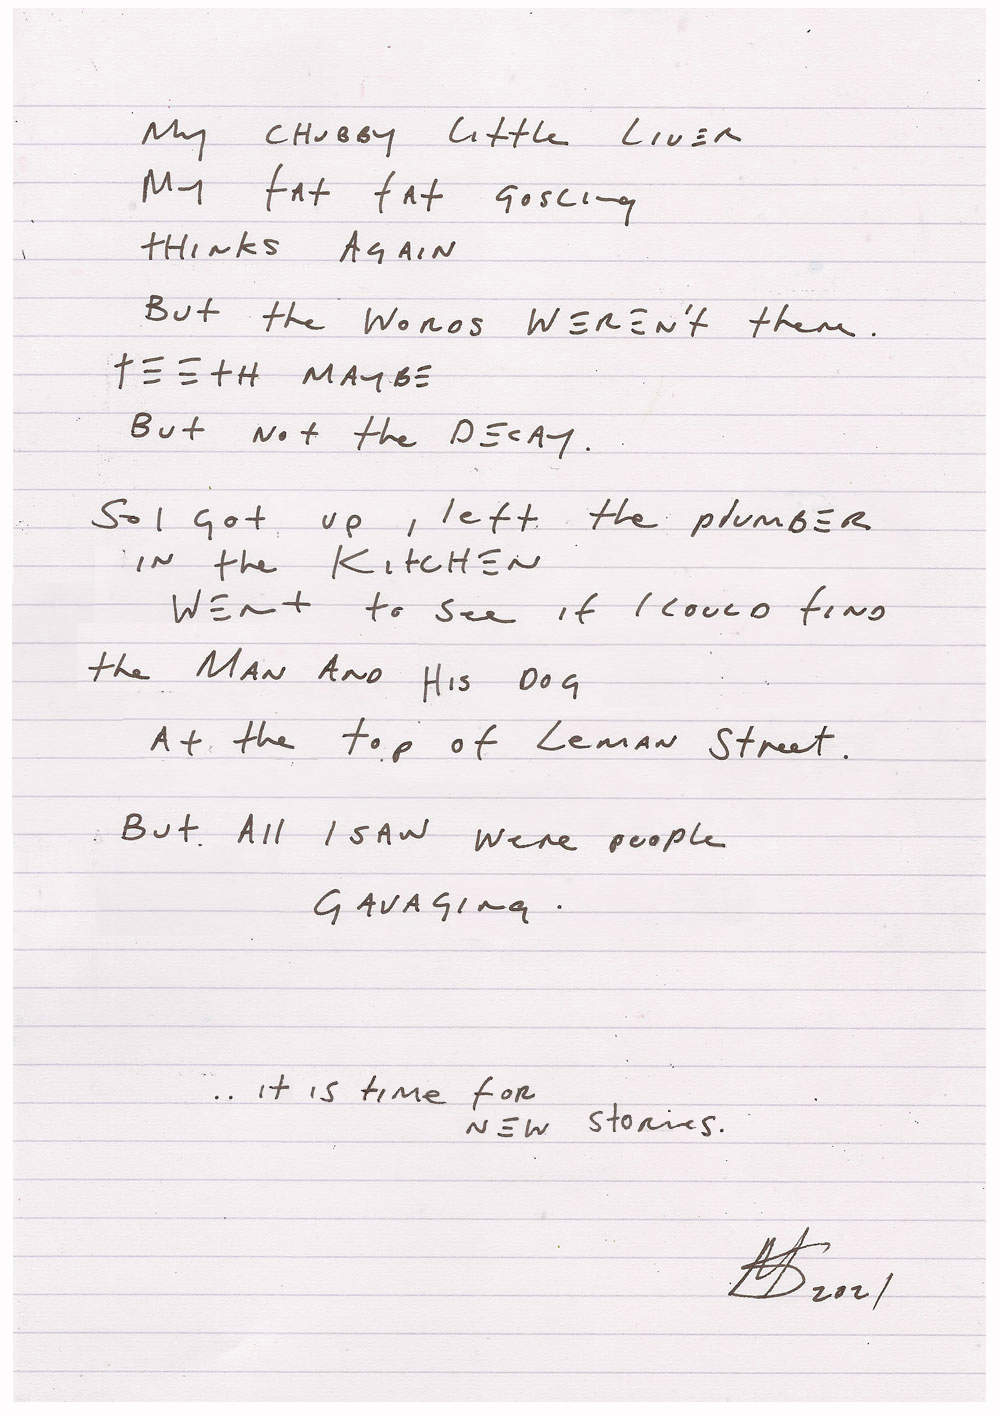 My CHUBBY Little LIVER
My fAt fAt gosling
tHINKS AGAIN
But the WORDS WEREN't there.
tEEtH MAYBE
But Not the DECAY.
So I got up, left the plumBER
IN the KItCHEN
WENt to see if I COULD fIND
the MAN AND HIS DOG
At the top of LEMAN Street.
But All I SAW were people
GAVAGINg.
.. it is time for
NEW stories.
2021